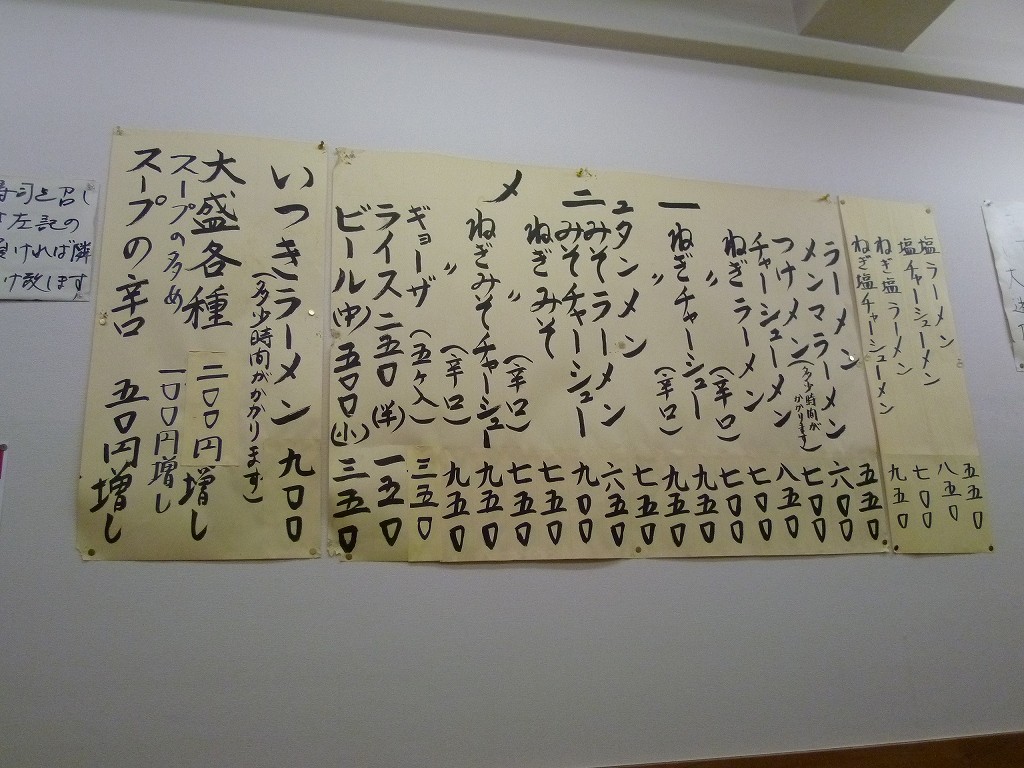 塩ラーメン 五五〇
塩チャーシューメン 八五〇
ねぎ塩ラーメン 七〇〇
ねぎ塩チャーシューメン 九五〇
メニュー
ラーメン 五五〇
メンマラーメン 六〇〇
つけメン(多少時間がかかります) 七〇〇
チャーシューメン 八五〇
ねぎラーメン 七〇〇
〃 (辛口) 七〇〇
ねぎチャーシュー 九五〇
〃 (辛口) 九五〇
タンメン 七五〇
みそラーメン 六五〇
みそチャーシュー 九〇〇
ねぎみそ 七五〇
〃 (辛口) 七五〇
ねぎみそチャーシュー 九五〇
〃 (辛口) 九五〇
ギョーザ (五ヶ入) 三五〇
ライス 二五〇 (半) 一五〇
ビール(中) 五〇〇 (小) 三五〇
いつきラーメン 九〇〇
(多少時間がかかります)
大盛各種 二〇〇円増し
スープの多め 一〇〇円増し
スープの辛口 五〇円増し
寿司を召し
左記の
ければ隣
け致します